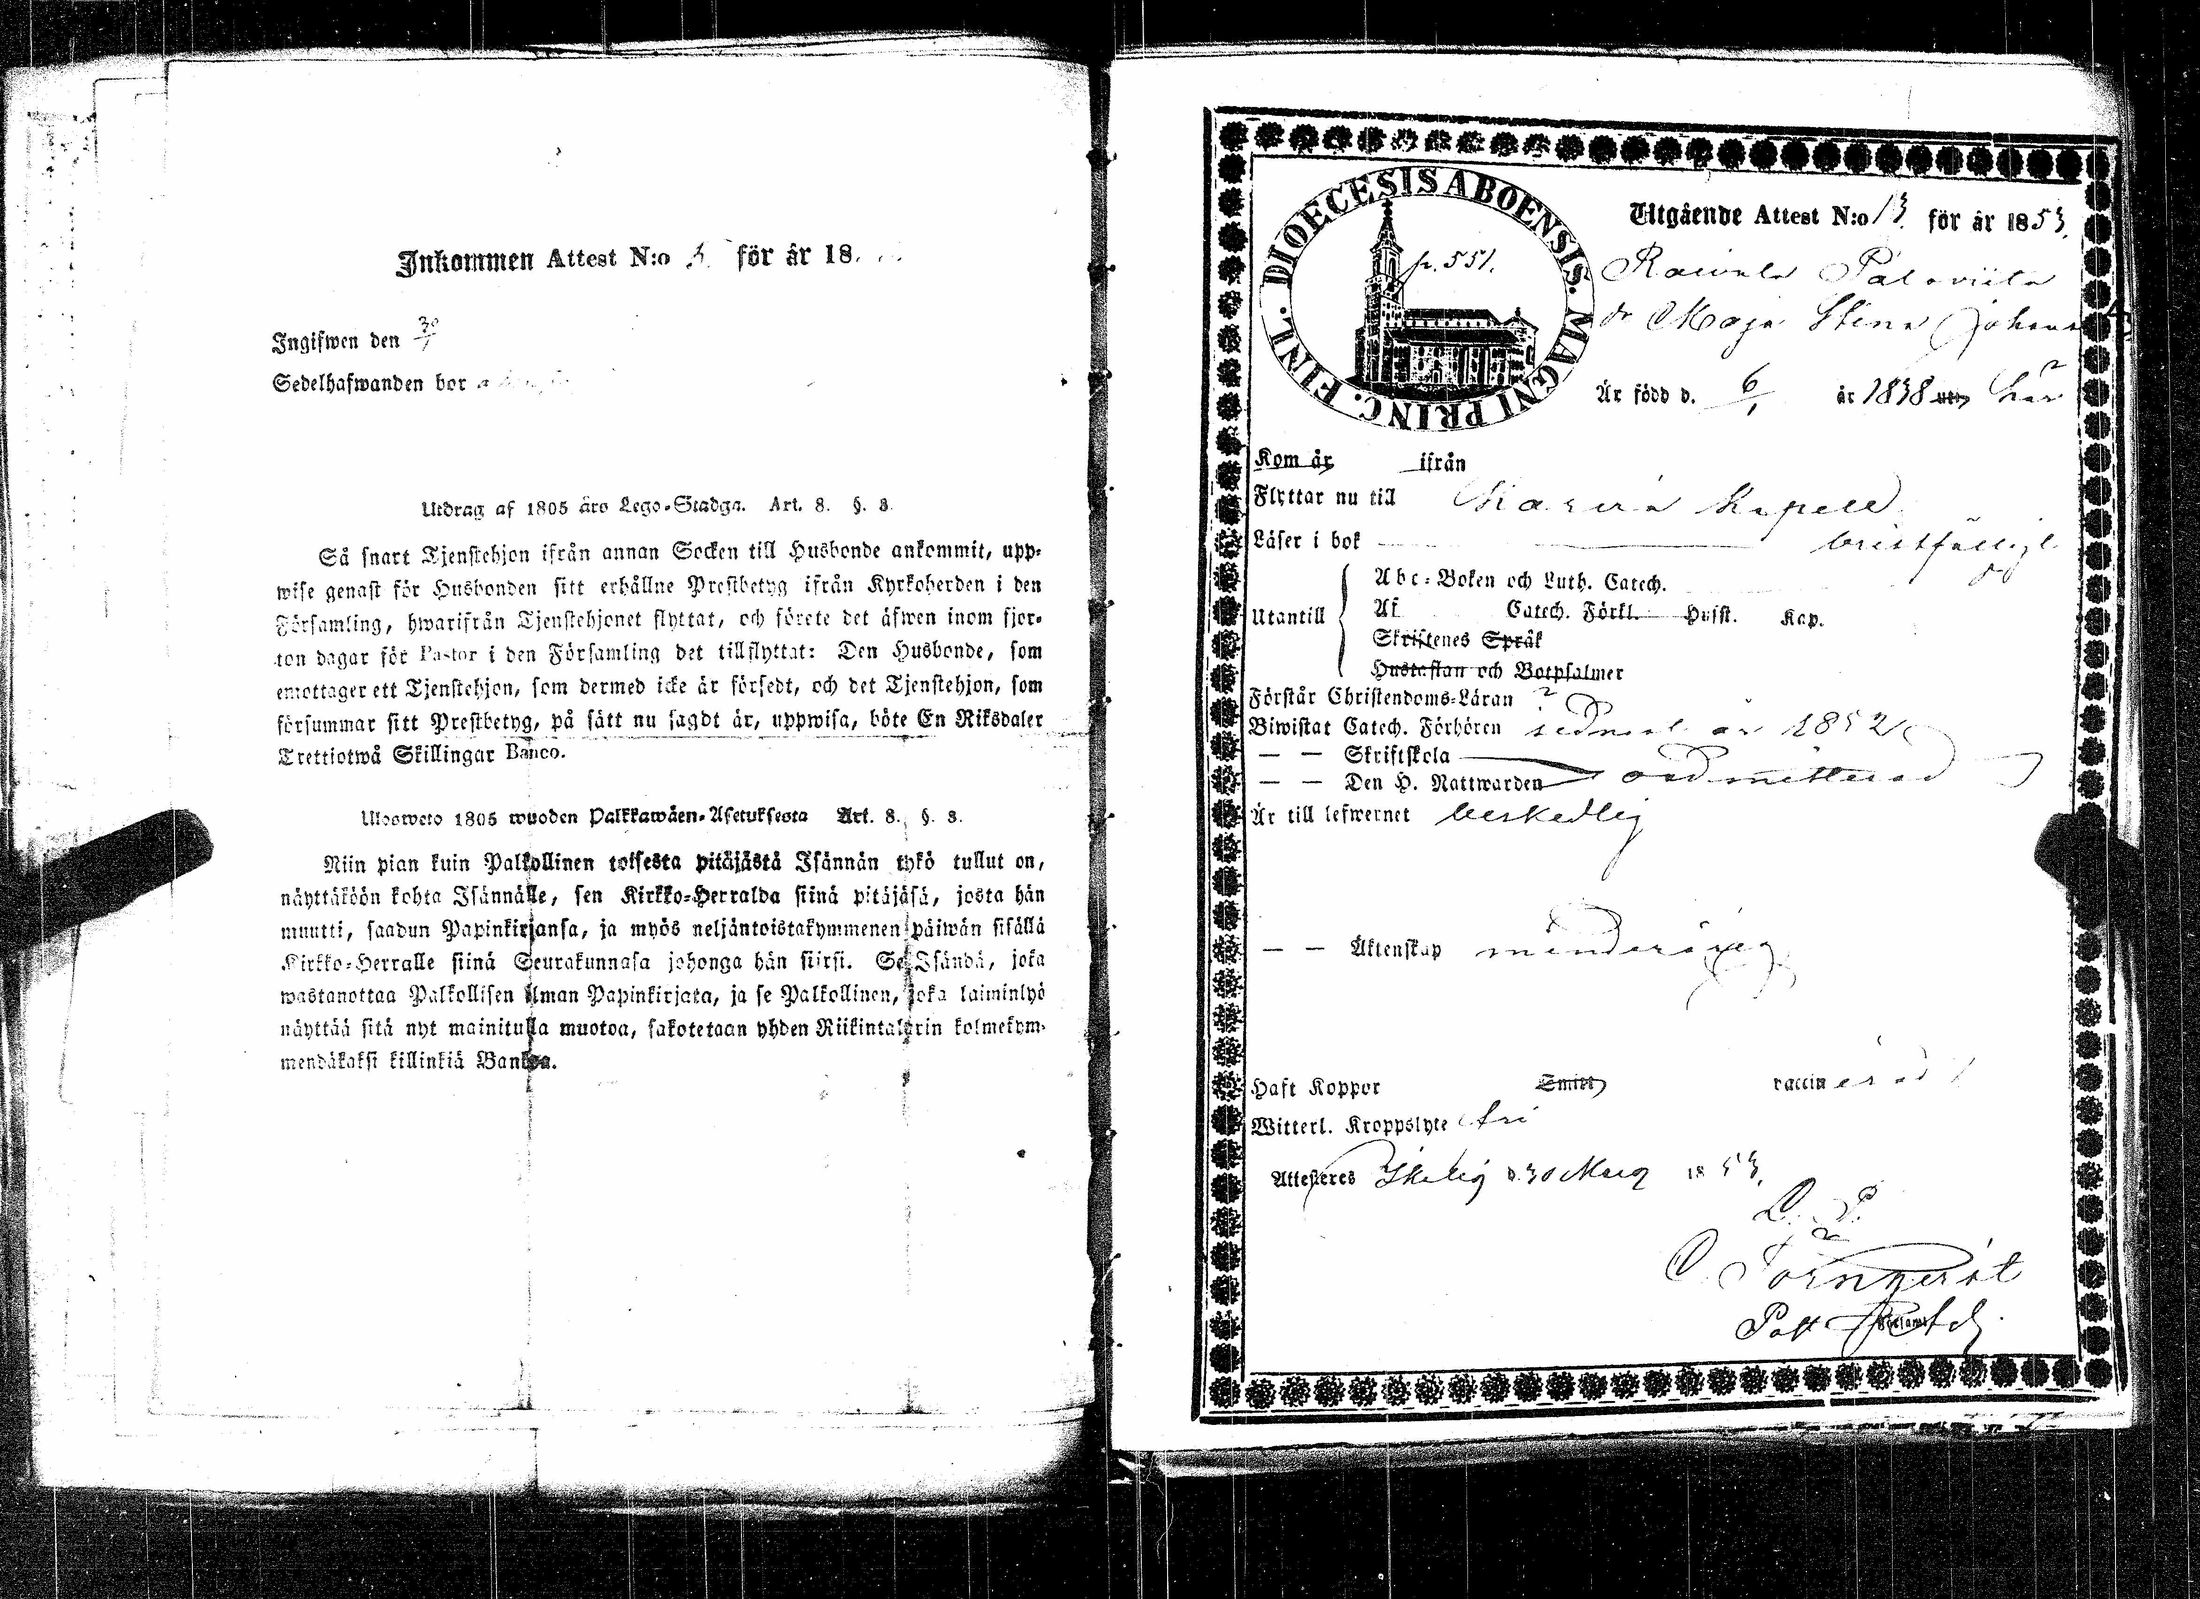 Inkommen Attest N:o 5. för år 18
Ingifwen den 30/7
Sedelhafwanden bor
Utdrag af 1805 års Lego-Stadga. Art. 8. §. 3.
Så snart Tjenstehjon ifrån annan Socken till Husbonde ankommit, upp-
wise genast för Husbonden sitt erhållne Prestbetyg ifrån Kyrkoherden i den
Församling, hwarifrån Tjenstehjonet flyttat, och förete det äfwen inom fjor-
ton dagar för Pastor i den Församling det tillflyttat: Den Husbonde, som
emottager ett Tjenstehjon, som dermed icke är försedt, och det Tjenstehjon, som
försummar sitt Prestbetyg, på sätt nu sagdt är, uppwisa, böte En Riksdaler
Trettiotwå Skillingar Banco.
Ulosweto 1805 wuoden Palkkawäen-Asetuksesta Art. 8. §. 3.
Niin pian kuin Palkollinen toisesta pitäjästä Isännän tykö tullut on,
näyttäköön kohta Isännälle, sen Kirkko-Herralda siinä pitäjäsä, josta hän
muutti, saadun Papinkirjansa, ja myös neljäntoistakymmenen päiwän sisällä
Kirkko-Herralle siinä Seurakunnasa johonga hän siirsi. Se Isändä, joka
wastanottaa Palkollisen ilman Papinkirjata, ja se Palkollinen, joka laiminlyö
näyttää sitä nyt mainitulla muotoa, sakotetaan yhden Riikintalarin kolmekym-
mendäkaksi killinkiä Bankoa.
DIOECESIS ABOENSIS. MAGNI PRINC. FINL.
p. 551.
Utgående Attest N:o 13. för år 1853.
Raivala Paloviita
dr Maja Stina Johans
Är född d. 6/1 år 1838 uti här
Kom år ifrån
Flyttar nu till Kapell
Läser i bok bristfälligt
Utantill
Abc-Boken och Luth. Catech.
Af Catech. Förkl. Husst. Kap.
Skriftenes Språk
Hustaflan och Botpsalmer
Förstår Christendoms-Läran
Biwistat Catech. Förhören sednast år 1852
— — Skriftskola
— — Den H. Nattwarden oadmitterad
Är till lefwernet beskedlig
— — Äktenskap minderårig
Haft Koppor Smitt vaccinerad
Witterl. Kroppslyte fri
Attesteres d. 30 1853.